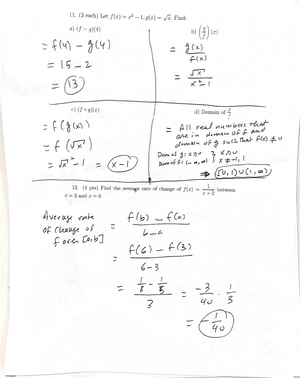 11. (3 each) Let f(x) = x² − 1, g(x) = √x. Find:
a) (f − g)(4)
= f(4) − g(4)
= 15 − 2
= 13
b) (g/f)(x)
= g(x)/f(x)
= √x/(x² − 1)
c) (f∘g)(x)
= f(g(x))
= f(√x)
= √x² − 1 = x − 1
d) Domain of g/f
= All real numbers that
are in domain of f and
domain of g such that f(x) ≠ 0
Dom of g: x ≥ 0 } x ≥ 0
Dom of f: (−∞, ∞) } x ≠ −1, 1
⇒ [0, 1) ∪ (1, ∞)
12. (4 pts) Find the average rate of change of f(x) = 1/(x + 2) between
x = 3 and x = 6.
Average rate
of change of
f over [a,b]
= (f(b) − f(a))/(b − a)
= (f(6) − f(3))/(6 − 3)
= (1/8 − 1/5)/3 = −3/40 · 1/3
= −1/40